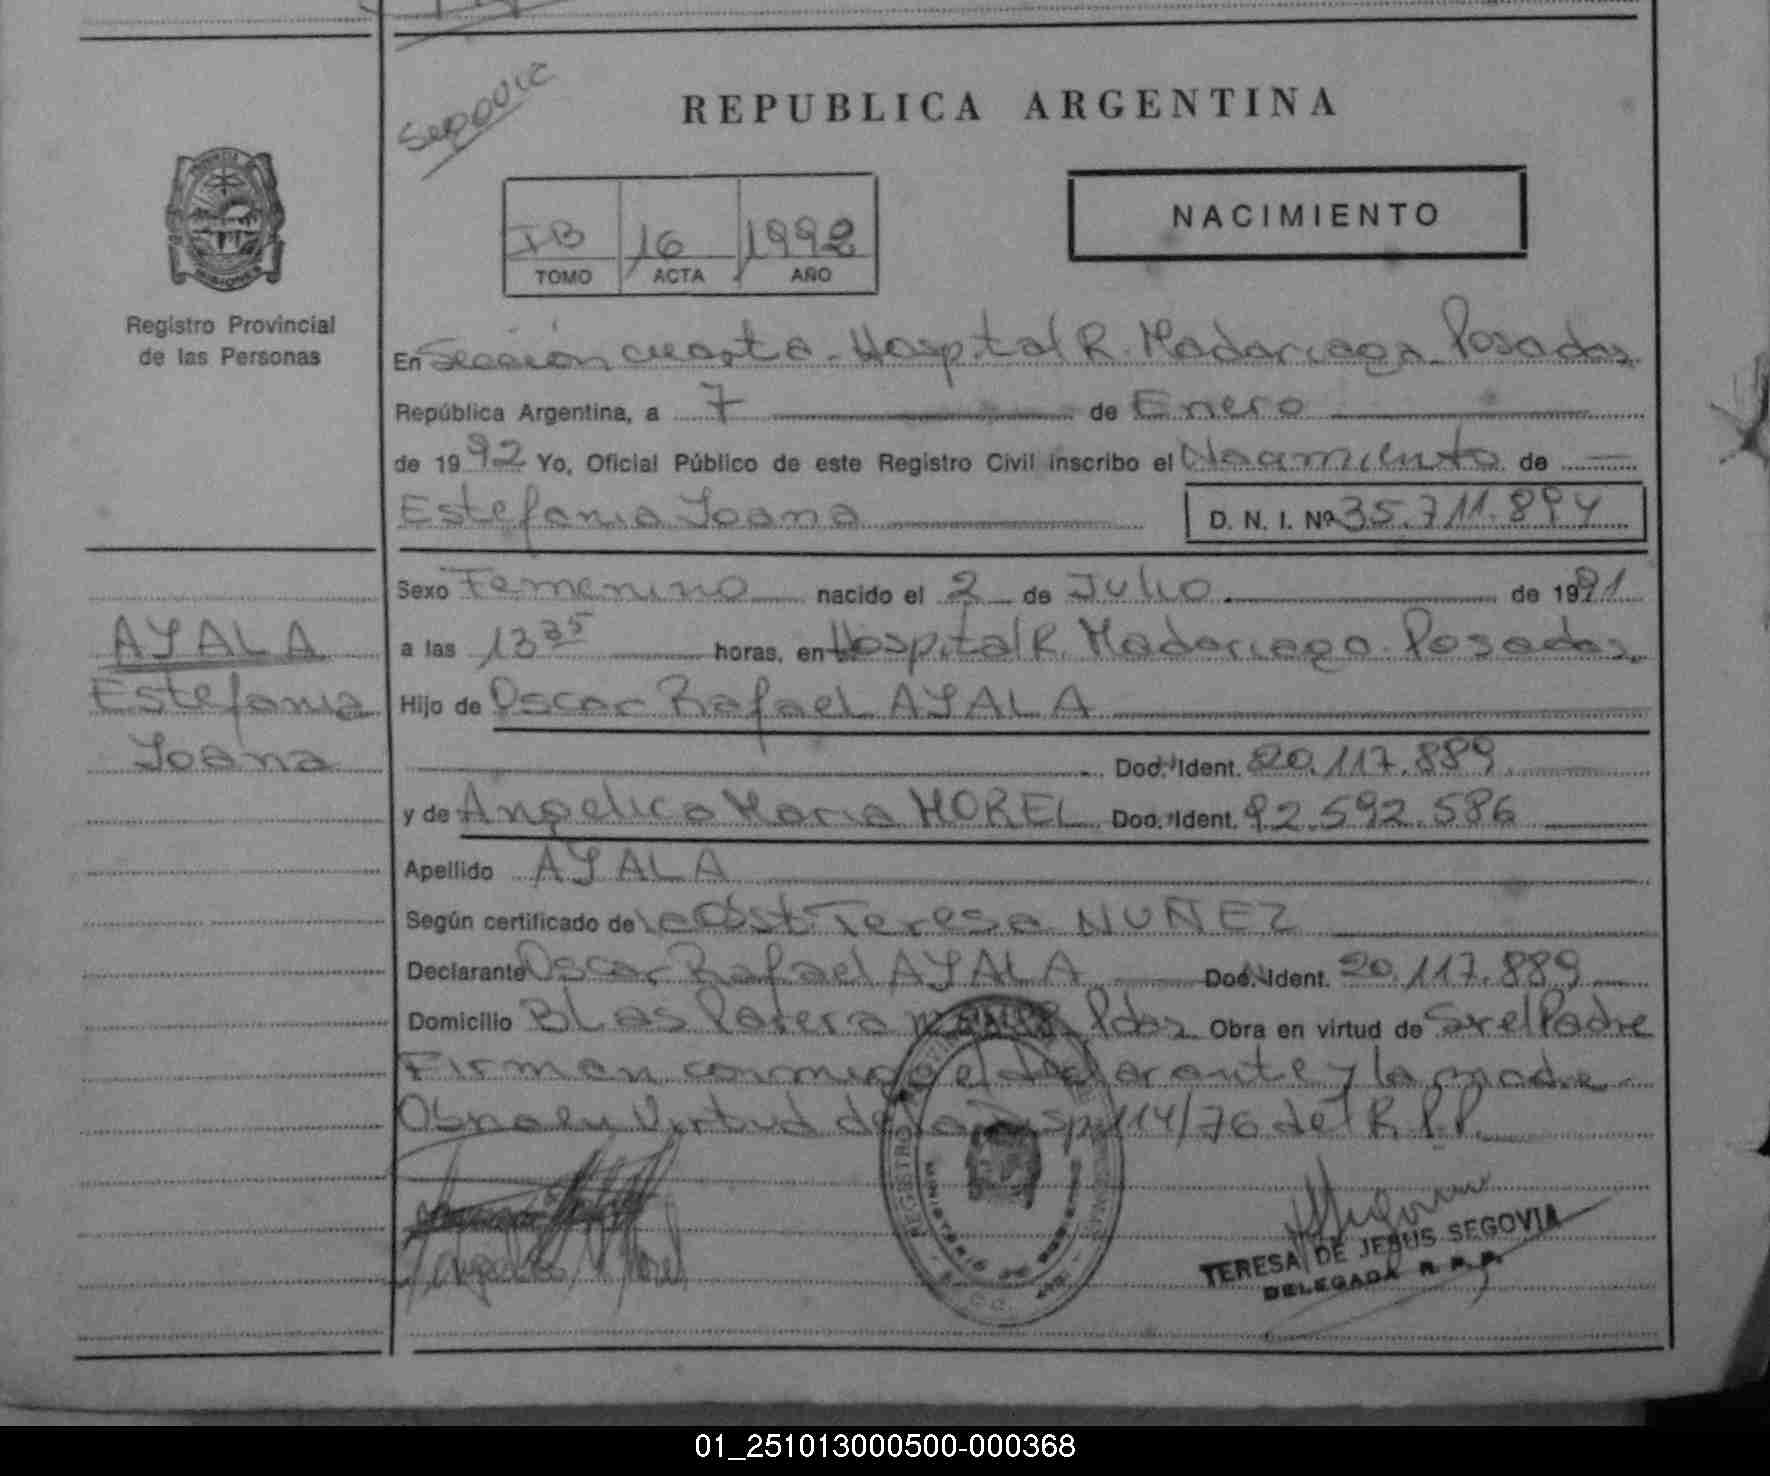 Segovia
REPUBLICA ARGENTINA
NACIMIENTO
IB 16 1992
TOMO ACTA AÑO
Registro Provincial
de las Personas
En Sección cuarta - Hospital R. Madariaga Posadas
República Argentina, a 7 de Enero
de 1992 Yo, Oficial Público de este Registro Civil inscribo el Nacimiento de
Estefania Yoana D. N. I. Nº 35.711.894
Sexo Femenino nacido el 2 de Julio de 1991
a las 13 35 horas, en Hospital R. Madariaga. Posadas
AYALA
Estefania
Yoana
Hijo de Oscar Rafael AYALA
Doc. Ident. 20.117.889
y de Angelica Maria MOREL Doc. Ident. 92.592.586
Apellido AYALA
Según certificado de la Obst Teresa NUÑEZ
Declarante Oscar Rafael AYALA Doc. Ident. 20.117.889
Domicilio Blas Parera Pdas Obra en virtud de Ser el Padre
Firman conmigo el declarante y la madre
Obra en Virtud de la Disp 114/76 del R.P.P.
REGISTRO
MINISTERIO DE
TERESA DE JESUS SEGOVIA
DELEGADA R. P. P.
01_251013000500-000368